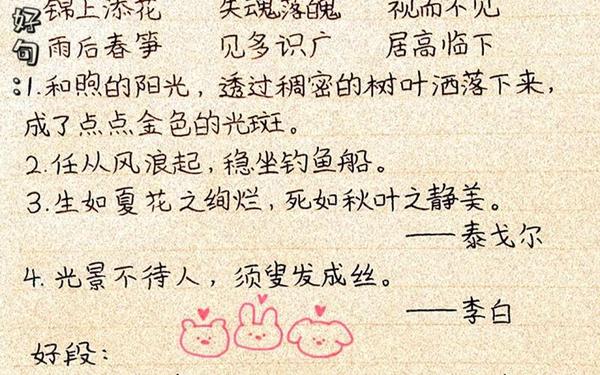 锦上添花 失魂落魄 视而不见
好句: 雨后春笋 见多识广 居高临下
1.和煦的阳光，透过稠密的树叶洒落下来，
成了点点金色的光斑。
2.任从风浪起，稳坐钓鱼船。
3.生如夏花之绚烂，死如秋叶之静美。
——泰戈尔
4.光景不待人，须叟发成丝。
——李白
好段：